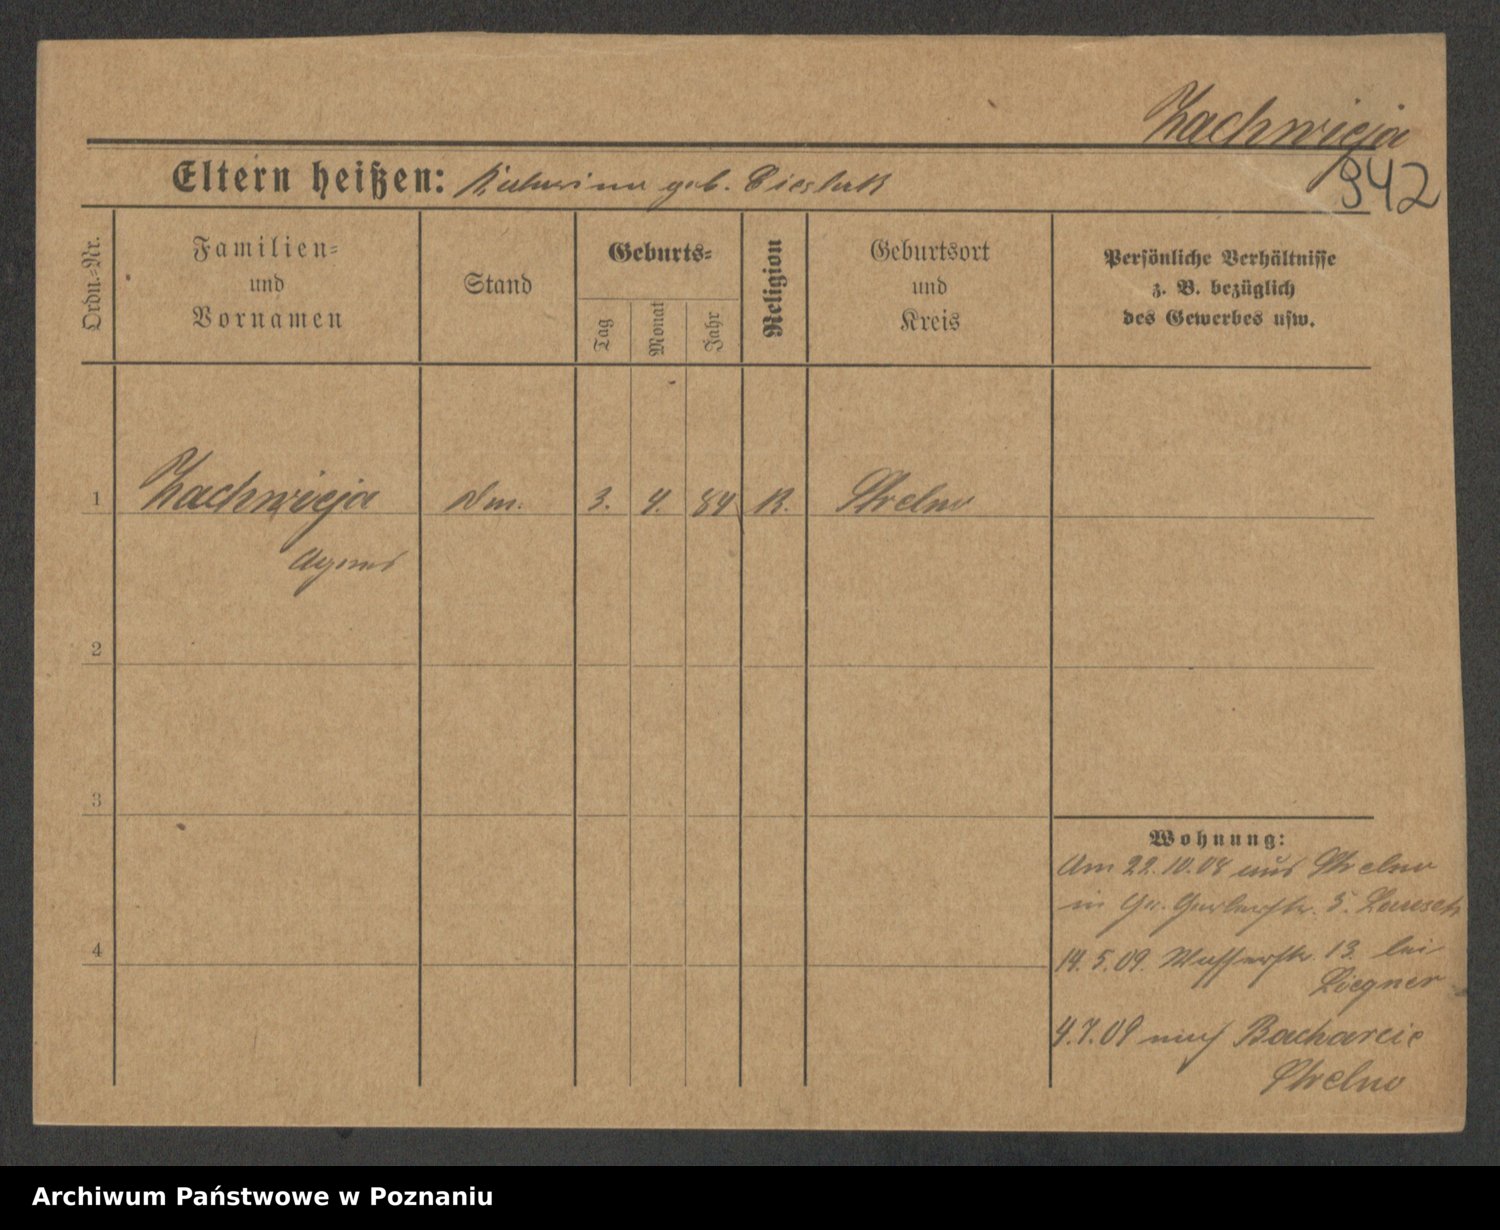 Zachwieja
942
Eltern heißen: Katarina geb. Cieslak
Ordn.=Nr.
Familien=
und
Vornamen
Stand
Geburts=
Tag
Monat
Jahr
Religion
Geburtsort
und
Kreis
Persönliche Verhältnisse
z. B. bezüglich
des Gewerbes usw.
1 Zachwieja 3. 4. 84 K. Strelno
Agnes
2
3
4
Wohnung:
Am 22.10.08 aus Strelno
in Gn. Gerberstr. 5.
14.5.09. Wasserstr. 13. bei
Liegner
4.7.09 nach Bacharcie
Strelno
Archiwum Państwowe w Poznaniu